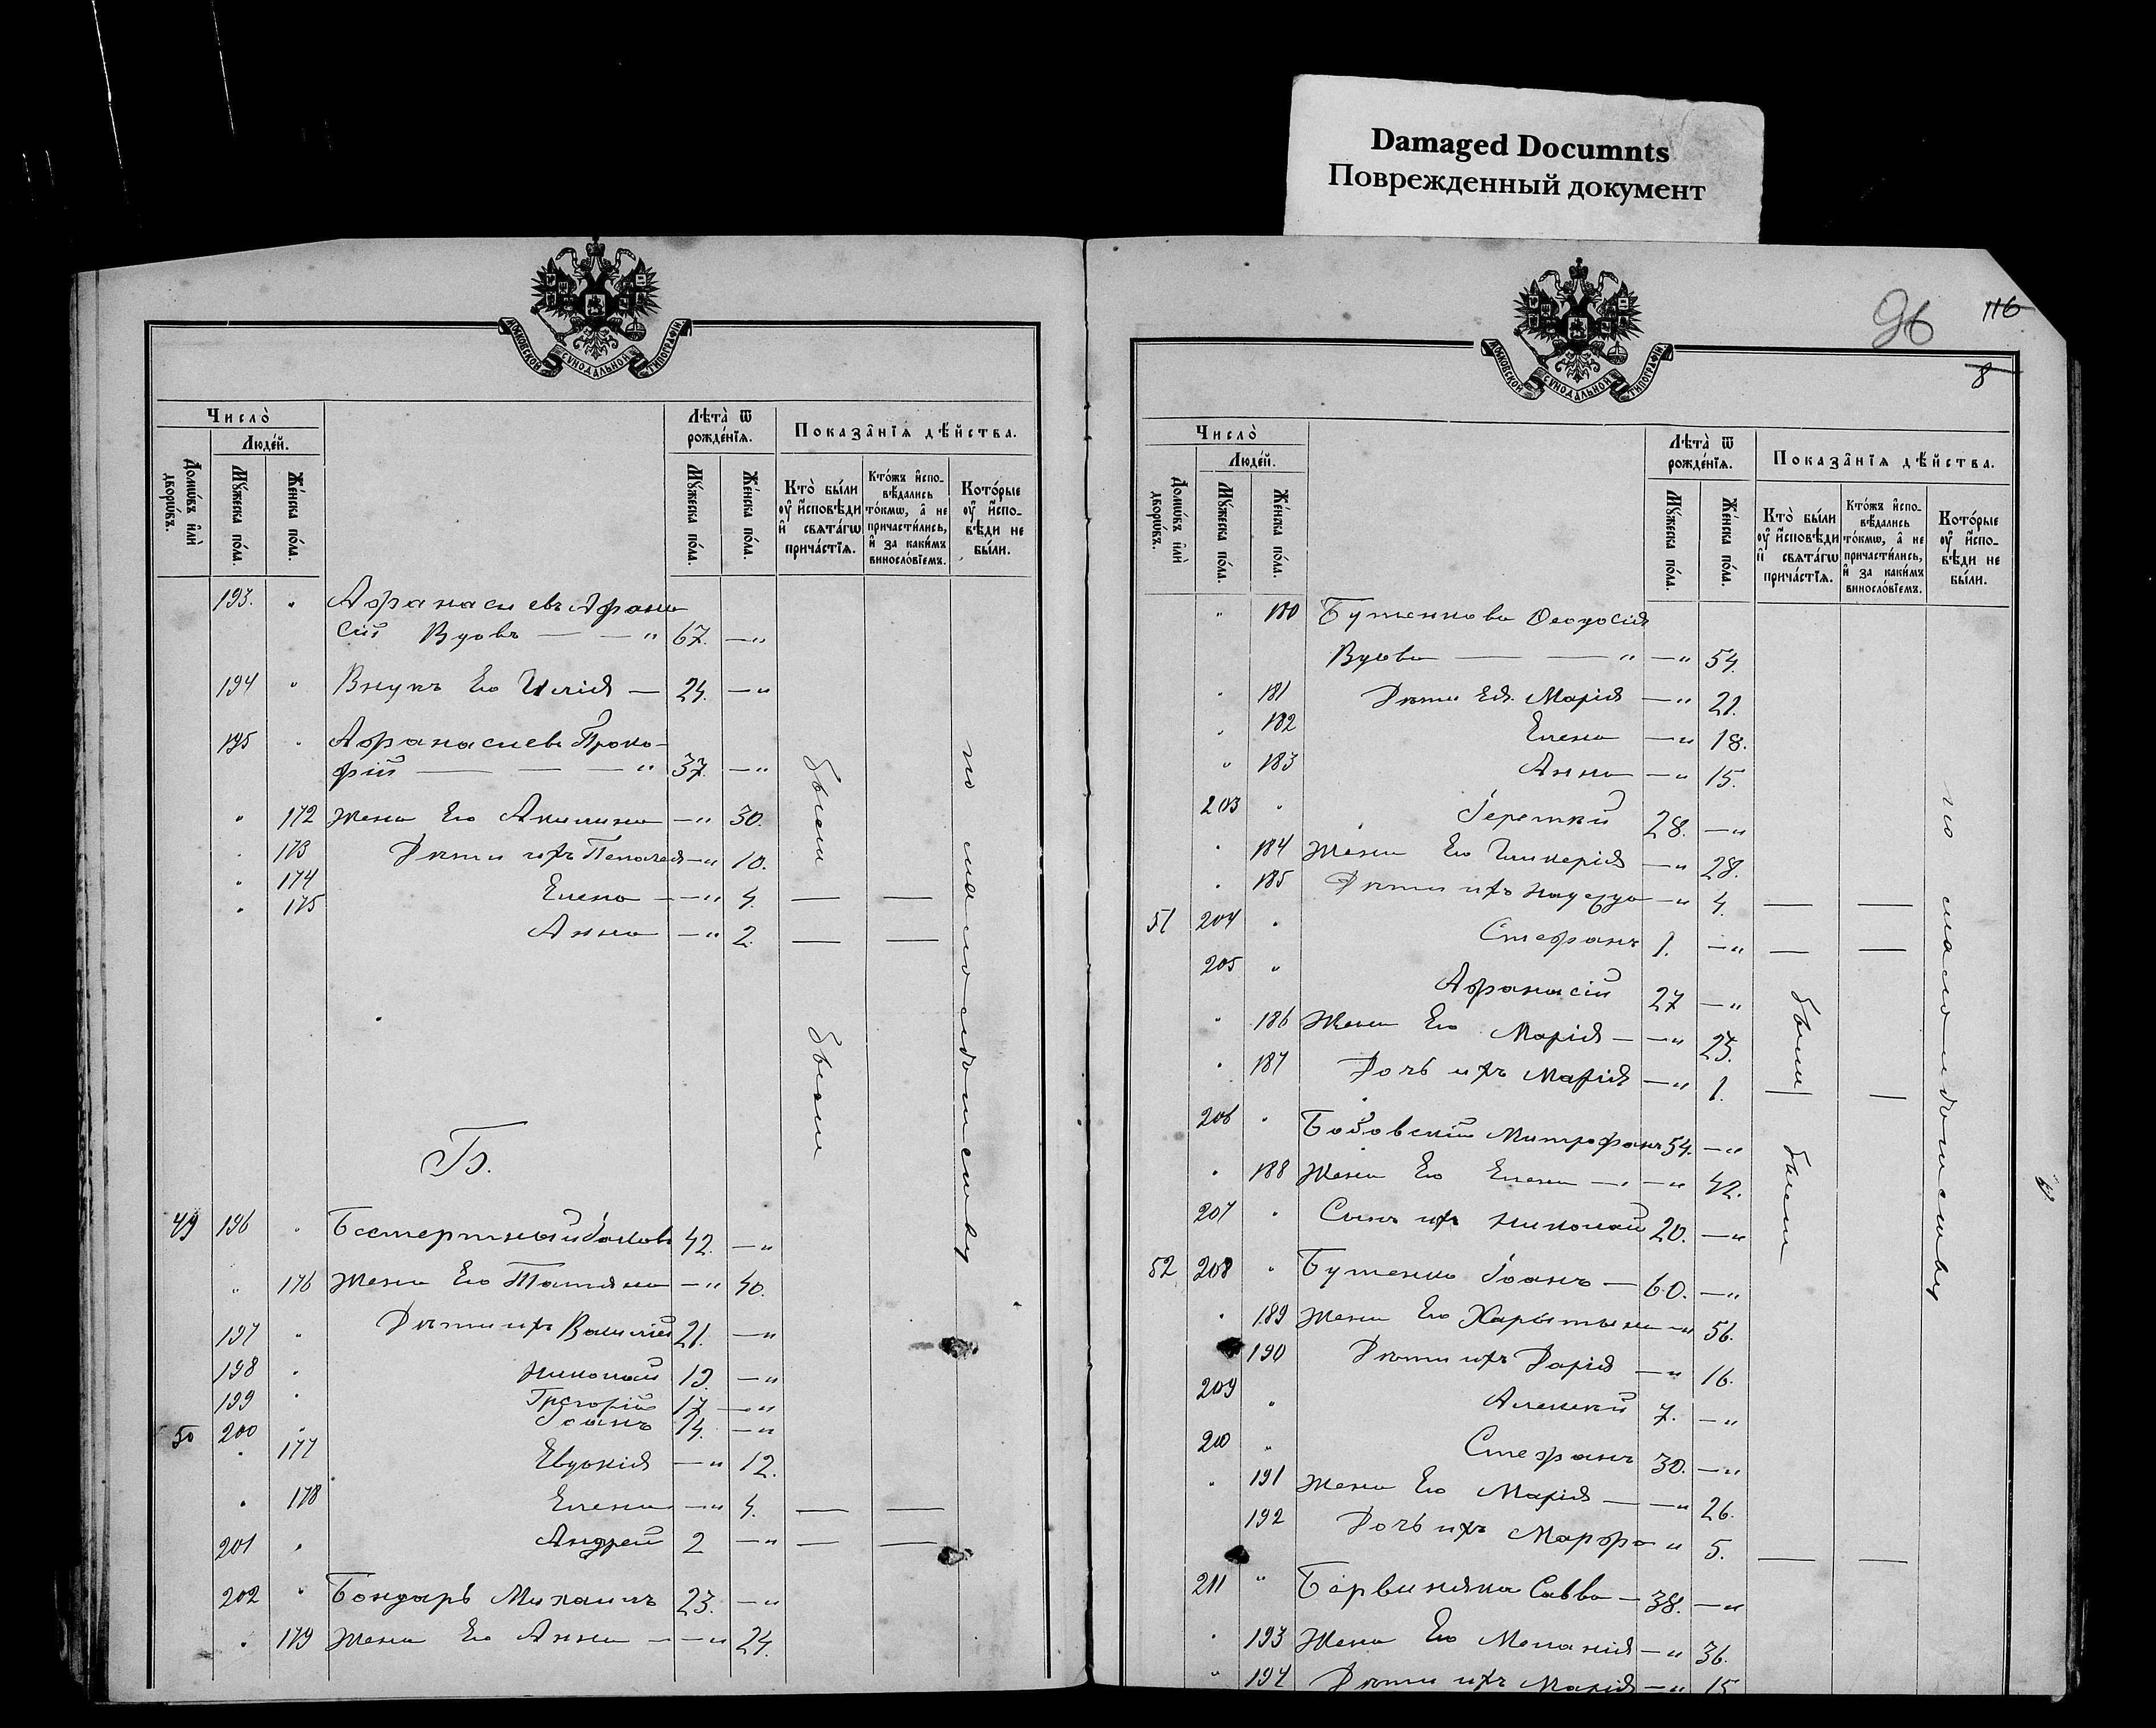 Damaged Documnts
Поврежденный документ
МОСКОВСКОЙ СѴНОДАЛЬНОЙ ТИПОГРАФІИ.
Число̀
Люде́й.
Домѡ́въ и҆лѝ дворѡ́въ.
Мꙋ́жеска по́ла.
Же́нска по́ла.
Лѣта̀ ѿ рожде́нїѧ.
Мꙋ́жеска по́ла.
Же́нска по́ла.
Показа̑нїѧ дѣ́йства.
Кто̀ бы́ли ᲂу҆ и҆сповѣди и҆ свѧта́гѡ прича́стїѧ.
Кто́жъ и҆спо-вѣдались то́кмѡ, а҆ не причасти́лись, и҆ за каки́мъ винослóвїемъ.
Кото́рые ᲂу҆ и҆спо-вѣди не бы́ли.
193. " Афанасиевъ Афана
сій Вдовъ — — " 67. — "
194 " Внукъ Его Илія — 24. — "
195 " Афанасиевъ Проко-
фій — — — " 37. — "
" 172 Жена Его Акилина — " 30.
" 173 Дѣти ихъ Пелагея — " 10.
" 174 Елена — — " 4. — —
" 175 Анна — " 2. — —
были
были
по малолѣтству
Б.
49 196 " Бесмертный Іаковъ 42. — "
" 176 Жена Его Татіяна — " 40.
197 " Дѣти ихъ Василій 21. — "
198 " Николай 19. — "
199 " Григорій 17. — "
50 200 " Іоанъ 14. — "
" 177 Евдокія — " 12.
" 178 Елена — " 4. — —
201 " Андрей 2 — " — —
202 " Бондарь Михаилъ 23. — "
" 179 Жена Его Анна — — " 24.
96 116
8
МОСКОВСКОЙ СѴНОДАЛЬНОЙ ТИПОГРАФІИ.
Число̀
Люде́й.
Домѡ́въ и҆лѝ дворѡ́въ.
Мꙋ́жеска по́ла.
Же́нска по́ла.
Лѣта̀ ѿ рожде́нїѧ.
Мꙋ́жеска по́ла.
Же́нска по́ла.
Показа̑нїѧ дѣ́йства.
Кто̀ бы́ли ᲂу҆ и҆сповѣди и҆ свѧта́гѡ прича́стїѧ.
Кто́жъ и҆спо-вѣдались то́кмѡ, а҆ не причасти́лись, и҆ за каки́мъ винослóвїемъ.
Кото́рые ᲂу҆ и҆спо-вѣди не бы́ли.
" 180 Бутенкова Феодосія
Вдова — — " — " 54.
" 181 Дѣти Ея Марія — " 21.
" 182 Елена — " 18.
" 183 Анна — " 15.
203 " 28. — "
" 184 Жена Его Гликерія — " 28.
" 185 Дѣти ихъ — " 4. — —
51 204 " Стефанъ 1. — " — —
205 " Афанасій 27 — "
" 186 Жена Его Марія — — " 25.
" 187 Дочь ихъ Марія — " 1. — —
206 " Бобовскій Митрофанъ 54. — "
" 188 Жена Его Елена — " — " 42.
207 " Сынъ ихъ Николай 20. — "
52 208 " Бутенко Іоанъ — 60. — "
" 189 Жена Его Харытына — " 56.
190 Дѣти ихъ Дарія — " 16.
209 " Алексей 7. — "
210 " Стефанъ 30. — "
" 191 Жена Его Марія — — " 26.
192 Дочь ихъ Марфа " 5. — —
211 " Савва — 38. — "
" 193 Жена Его Меланія — " 36.
" 194 Дѣти ихъ Марія — " 15
были
были
по малолѣтству